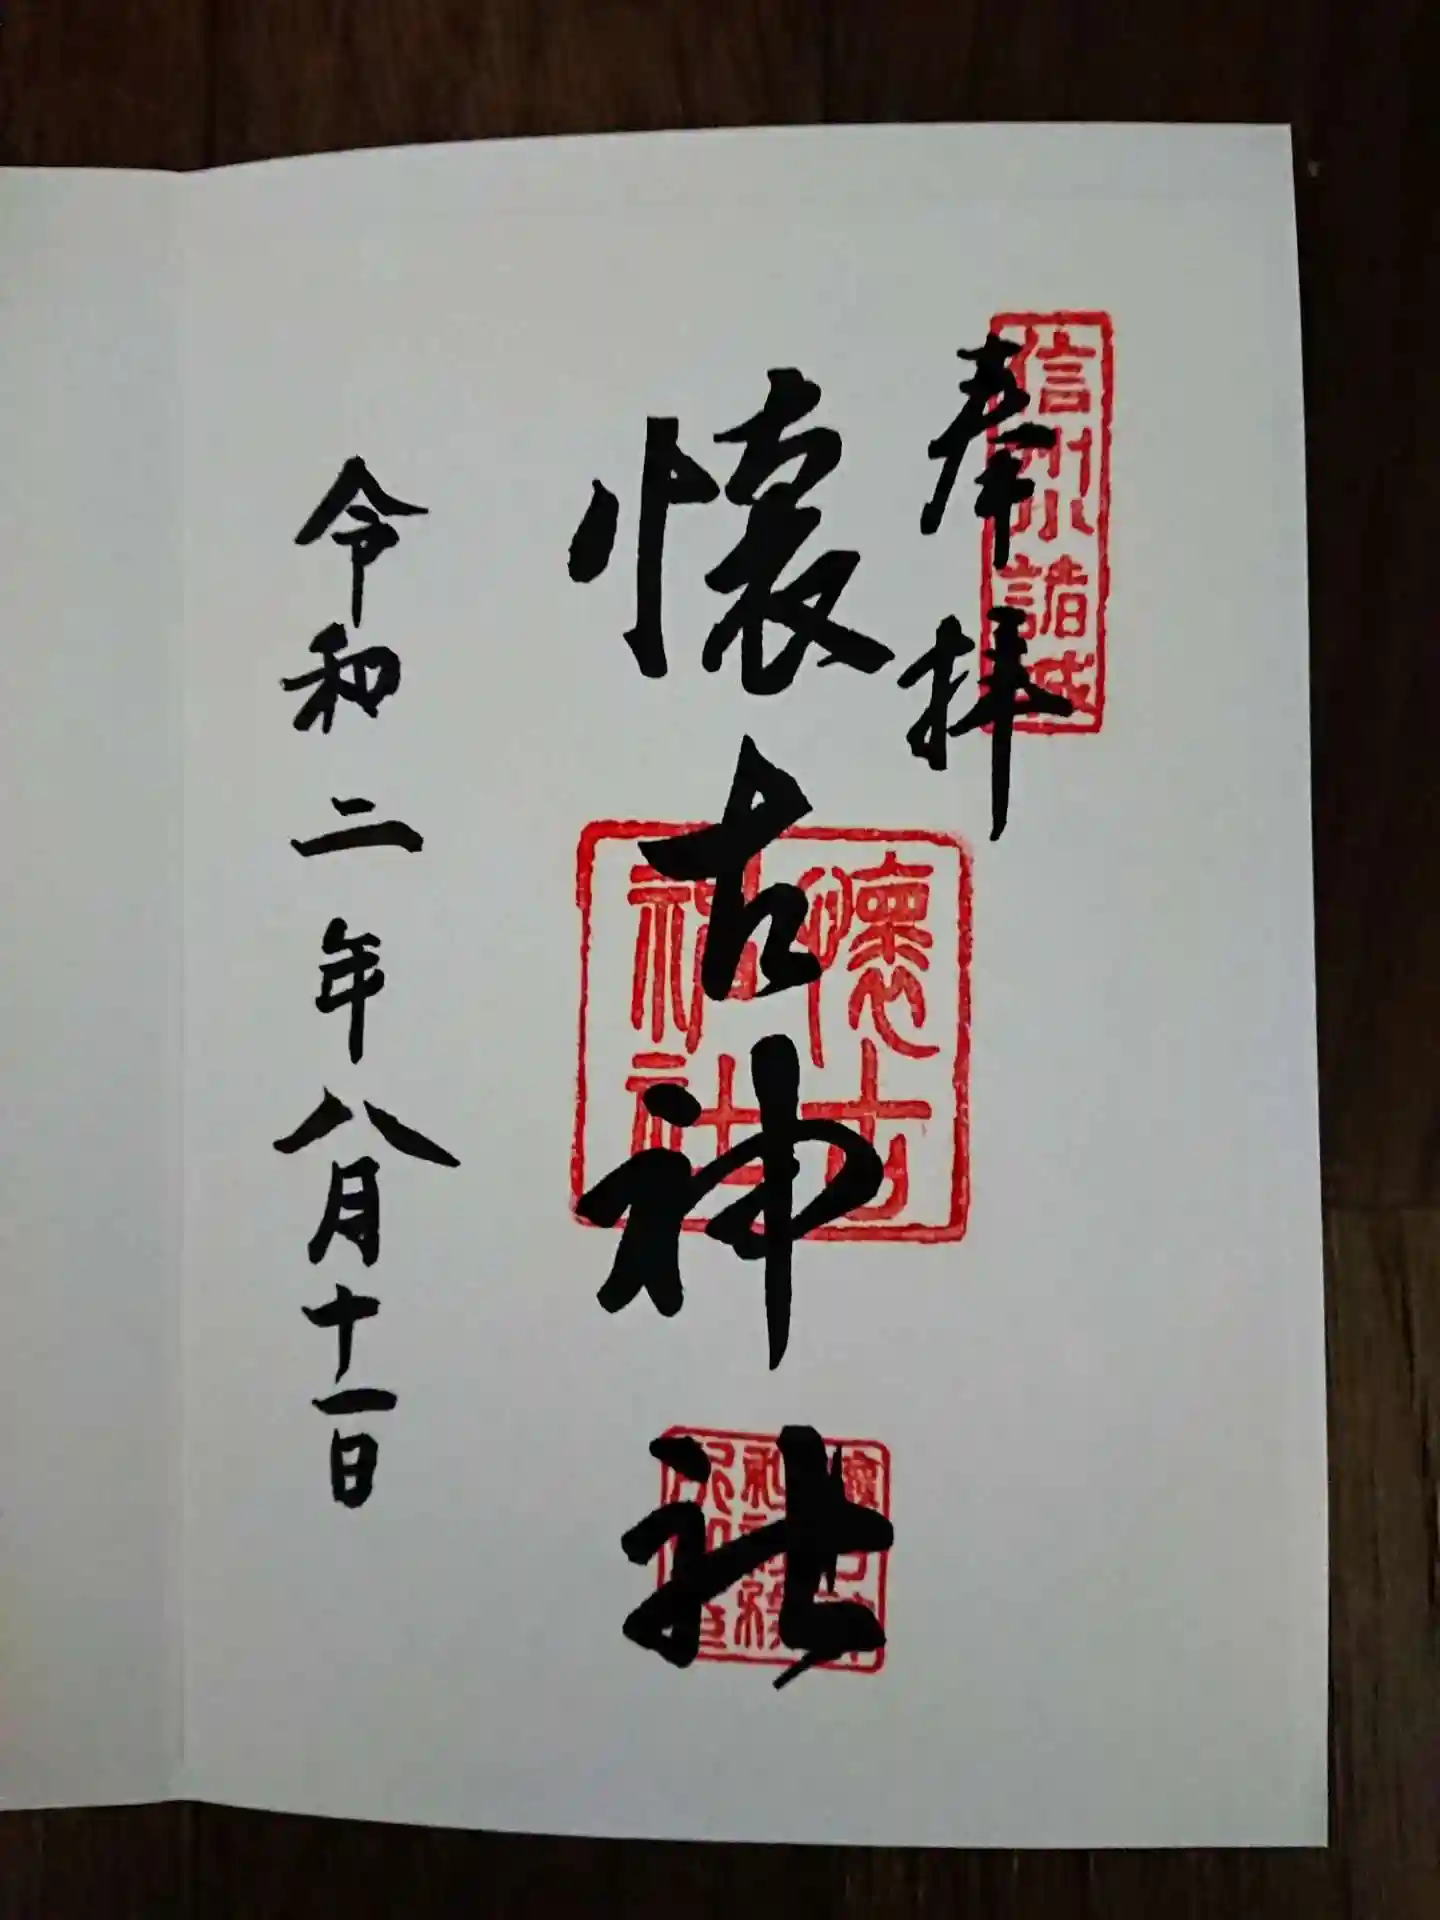 信州小諸城
奉拝
懐古神社
懐古
神社
令和二年八月十一日